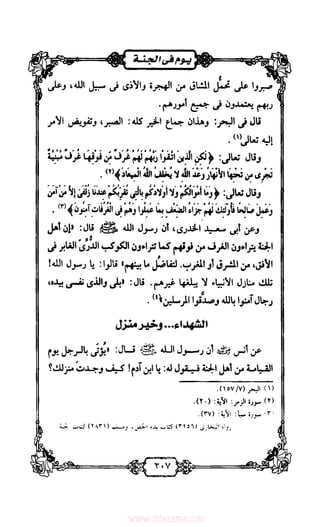 يوم فى الجنة
صبروا على تحمل المشاق من الهجرة والأذى فى سبيل الله، وعلى
ربهم يعتمدون فى جميع أمورهم.
قال فى البحر: وهذان جماع الخير كله: الصبر، وتفويض الأمر
إليه تعالى(١).
وقال تعالى: ﴿لَكِنِ الَّذِينَ اتَّقَوْا رَبَّهُمْ لَهُمْ غُرَفٌ مِّن فَوْقِهَا غُرَفٌ مَّبْنِيَّةٌ
تَجْرِى مِن تَحْتِهَا الأَنْهَارُ وَعْدَ اللَّهِ لا يُخْلِفُ اللَّهُ الْمِيعَادَ﴾(٢).
وقال تعالى: ﴿وَمَا أَمْوَالُكُمْ وَلا أَوْلادُكُم بِالَّتِى تُقَرِّبُكُمْ عِندَنَا زُلْفَىٰ إِلاَّ مَنْ آمَنَ
وَعَمِلَ صَالِحًا فَأُوْلَئِكَ لَهُمْ جَزَاءُ الضِّعْفِ بِمَا عَمِلُوا وَهُمْ فِى الْغُرُفَاتِ آمِنُونَ﴾(٣).
وعن أبى سعيد الخدرى، أن رسول الله ﷺ قال: «إن أهل
الجنة يتراءون الغرف من فوقهم كما تتراءون الكوكب الدُّرىَّ الغابر فى
الأفق، من المشرق أو المغرب. لتفاضُل ما بينهم» قالوا: يا رسول الله!
تلك منازل الأنبياء لا يبلغها غيرهم. قال: «بلى والذى نفسى بيده،
رجال آمنوا بالله وصدَّقوا المرسلين»(٤).
الشهداء... وخير منزل
عن أنس ﷺ أن رسول الله ﷺ قال: «يُؤتَى بالرجل يوم
القيامة من أهل الجنة فيقول له: يا ابن آدم! كيف وجدتَ منزلك؟
(١) البحر (١٥٧/٧).
(٢) سورة الزمر: الآية: (٢٠).
٣٠ سورة سبأ: الآية: (٣٧).
رواه البخارى (٣٢٥٦) كتاب بدء الخلق، ومسلم (٢٨٣١) كتاب الجنة.
٣٠٧